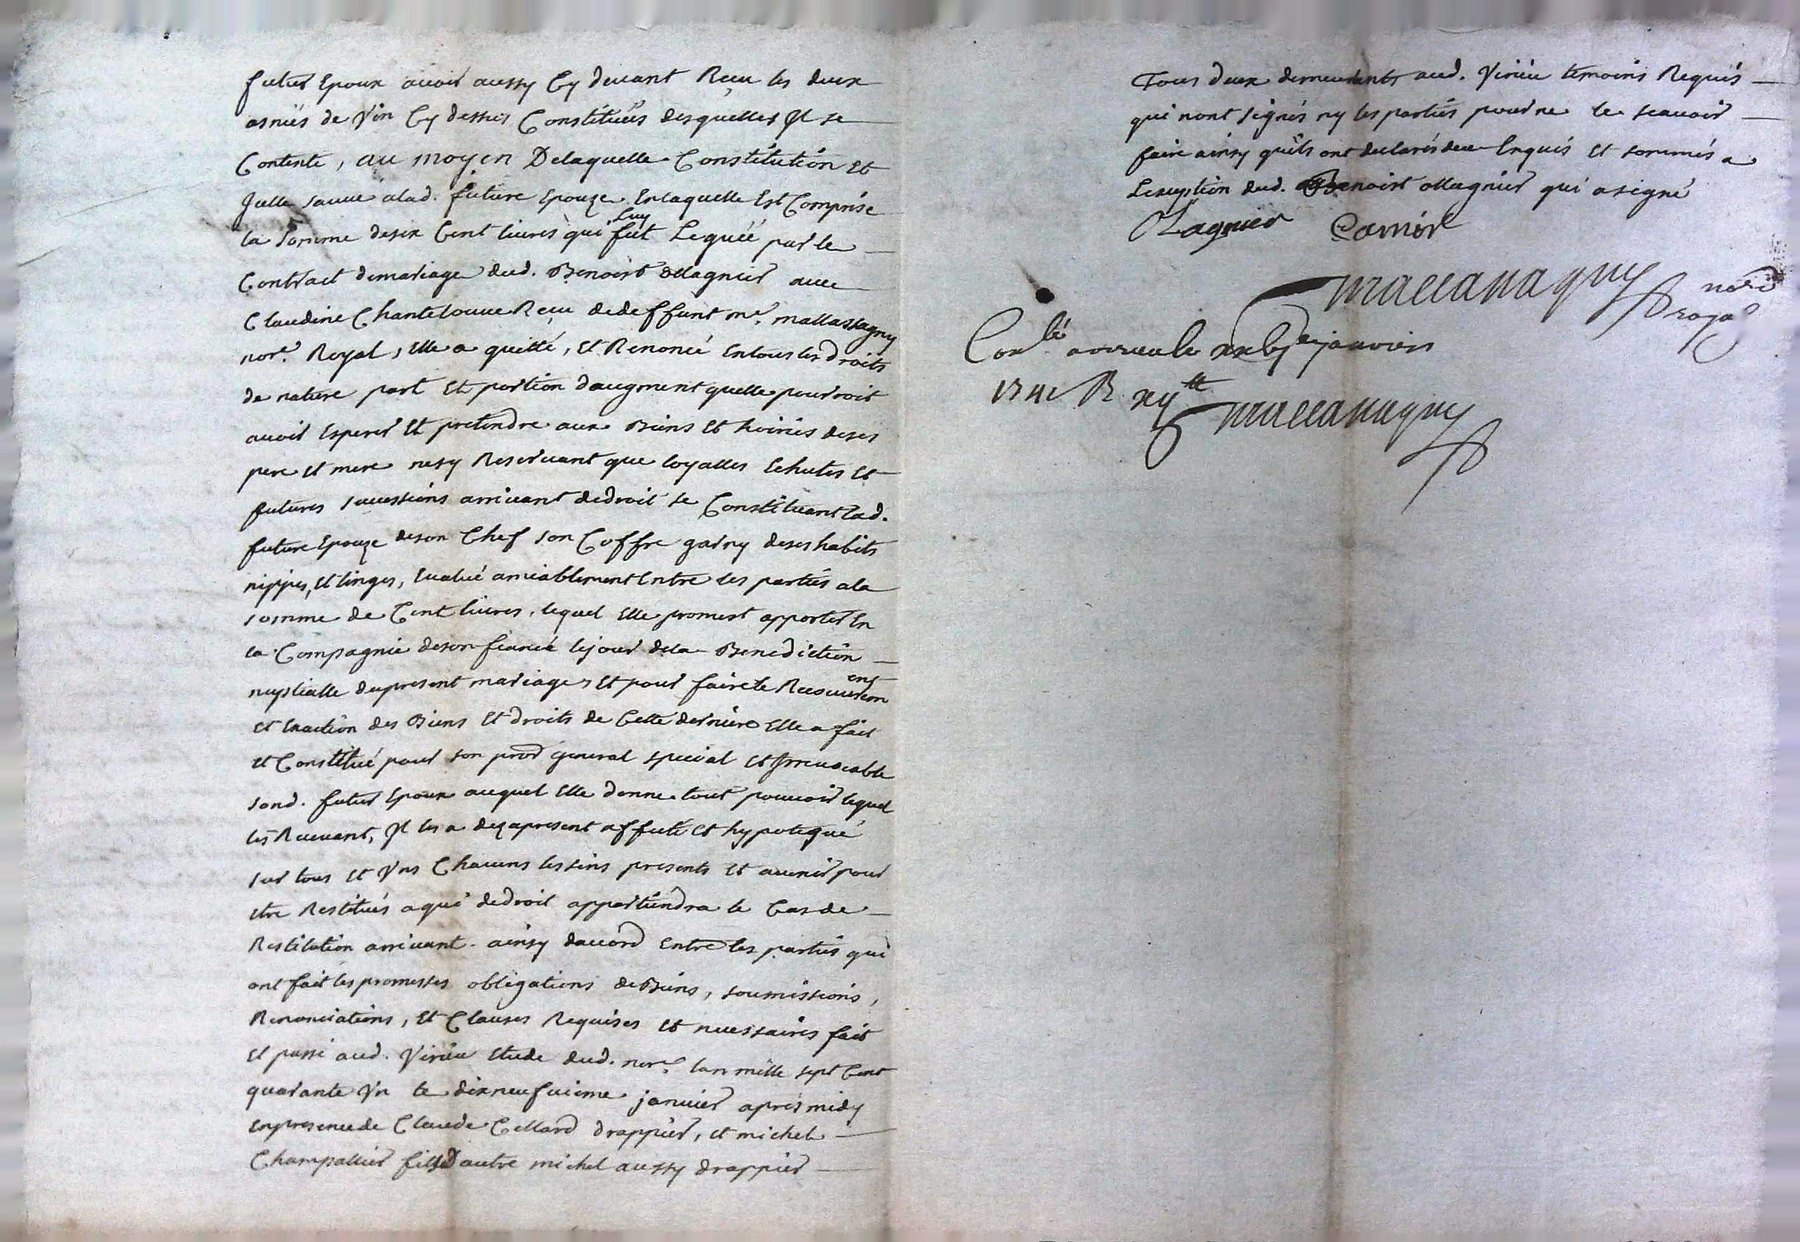 futur Epoux avoir aussy Cy devant Reçu les deux
asnées de vin Cy dessus Constituées desquelles Il se
Contente, au moyen Delaquelle Constitution Et
quelle sauve alad. future Epouze Enlaquelle Est Comprise
la somme desix Cent livres qui luy fut Leguée par le
Contract demariage dud. Benoist Magnier avec
Claudine Chantelouve Reçu dedeffunt me. mallassagny
nore. Royal, Elle a quitté, Et Renoncé Entous les droits
de nature part Et portion daugment quelle pourroit
avoir Esperer Et pretendre aux Biens Et hoiries deses
pere Et mere nesy Reservant que loyalles Echutes Et
futures successions arrivant dedroit se Constituant lad.
future Epouze deson Chef son Coffre garny deses habits
nippes, Et linges, Evalué amiablement Entre les parties ala
somme de Cent livres, lequel Elle promest apporter En
la Compagnie deson fiancé lejour dela Benediction
nuptialle dupresent mariage, Et pour faire le Recouvrem ent
Et Exaction des Biens Et droits de Cette derniere Elle a fait
Et Constitué pour son procr general special Et Irrevocable
sond. futur Epoux auquel Elle donne tout pouvoir lequel
les Recevant, Il les a dezapresent affecté Et hypotequé
sur tous Et Vns Chacuns lessins presents Et avenir pour
Etre Restitués aqui dedroit appartiendra le Cas de
Restitution arrivant. ainsy daccord Entre les parties qui
ont fait les promesses obligations deBiens, soumissions,
Renonciations, Et Clauses Requises Et necessaires fait
Et passé aud. Virieu Etude dud. nore. lan mille sept Cent
quarante Vn le dixneufvieme janvier apres midy
Enpresence de Claude Cellard drappier, Et michel
Champallier fils d'autre michel aussy drappier
Tous deux demeurants aud. Virieu temoins Requis
qui nont signés ny les parties pour ne le scavoir
faire ainsy quils ont declarés dece Enquis Et sommés a
Lexception dud. Benoist Magnier qui a signé
Magnier
mallassagny nore
royal
Conlé le janvier
1741 R xijtt
mallassagny